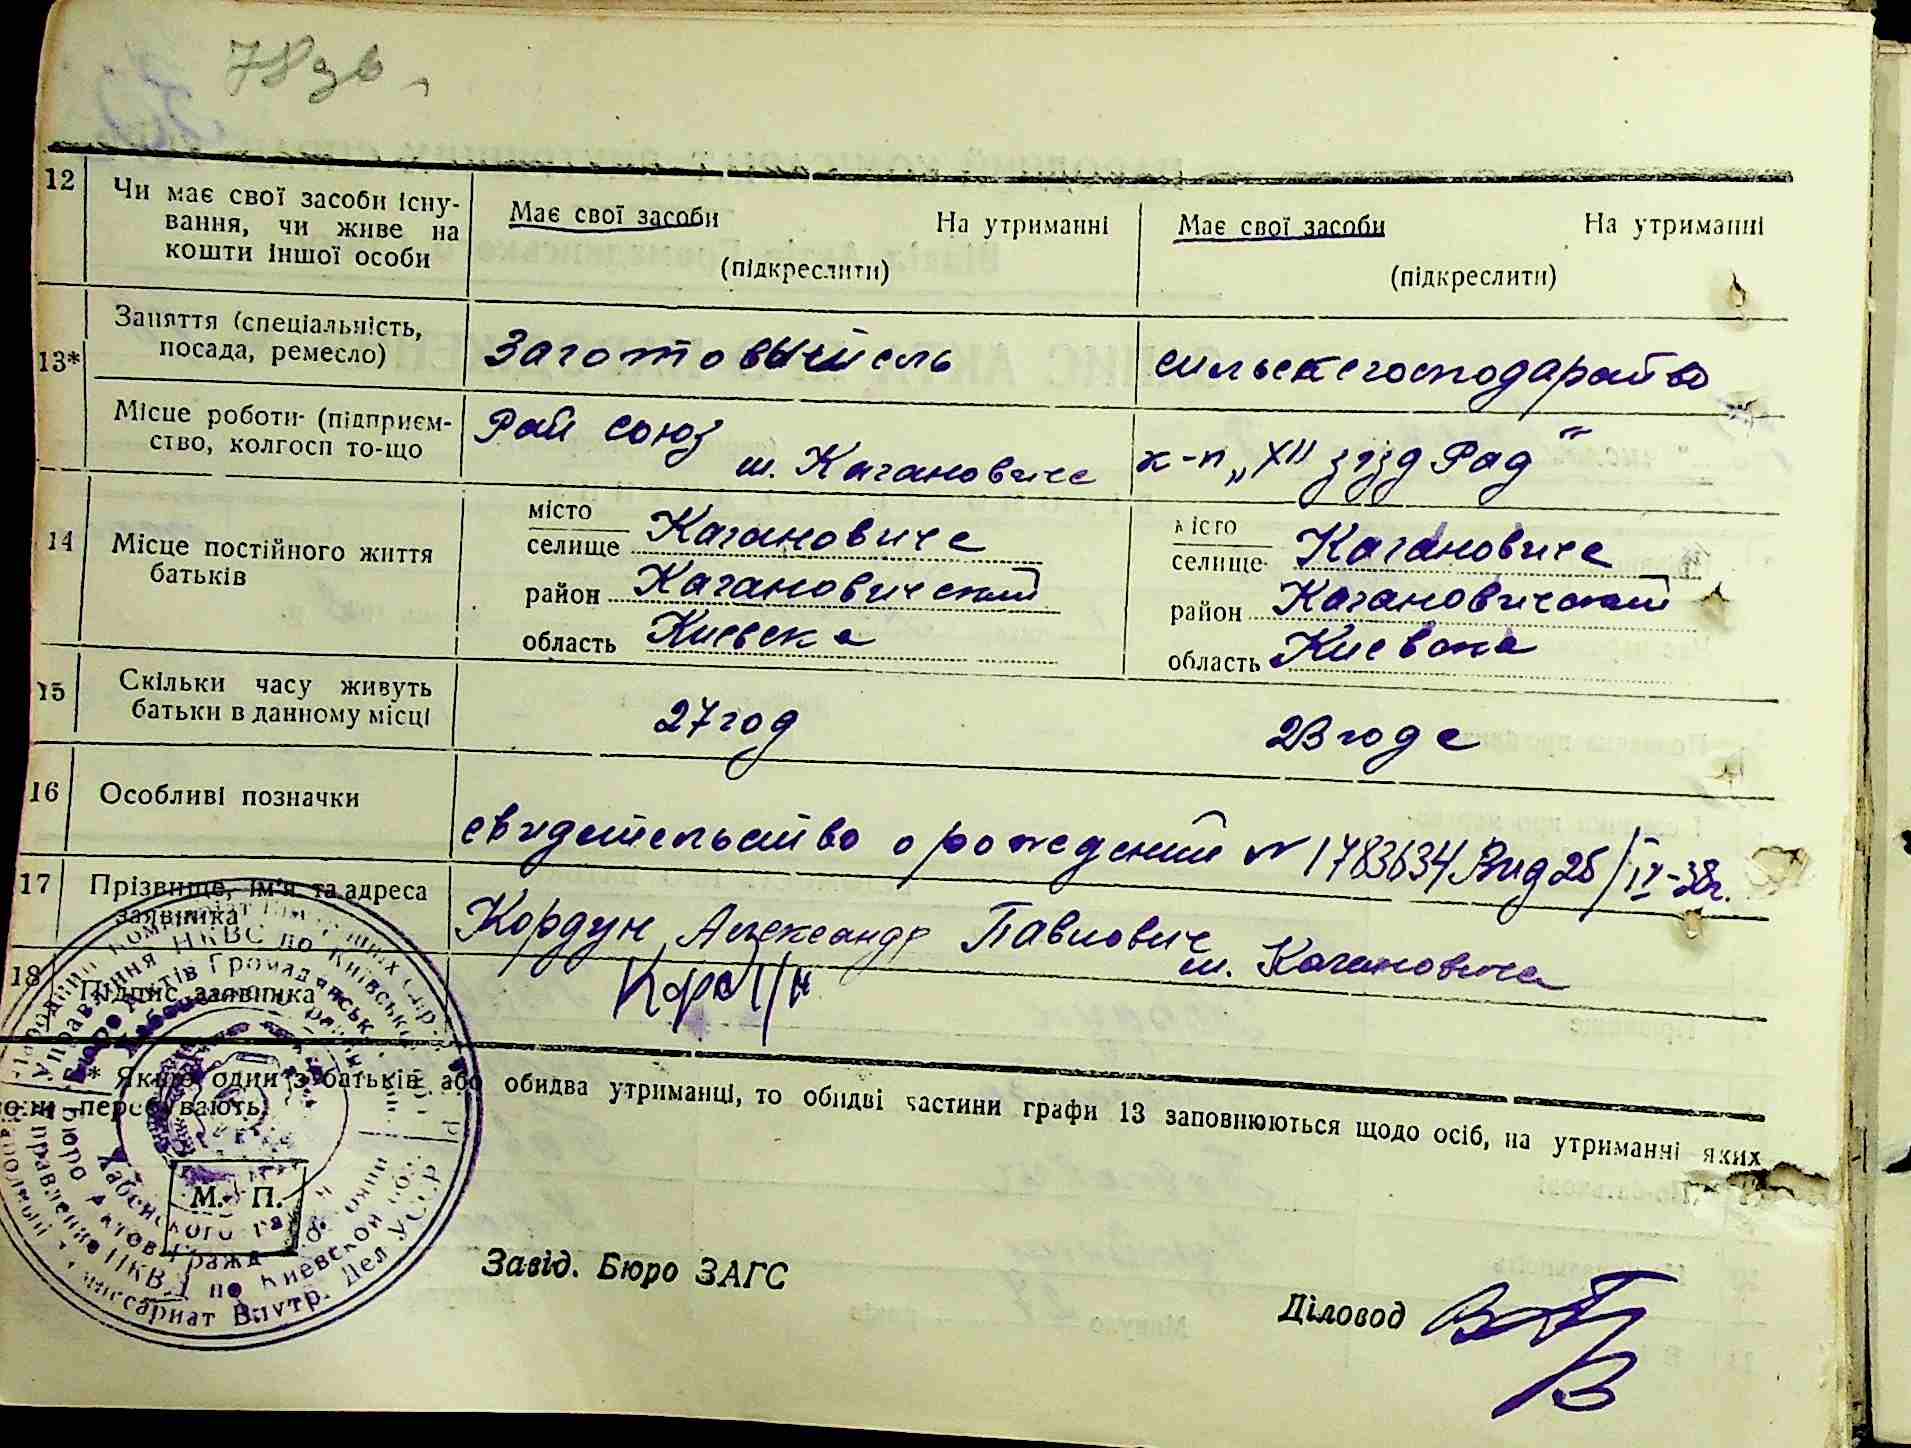 78 зв.
12 Чи має свої засоби існу-
вання, чи живе на
кошти іншої особи
Має свої засоби На утриманні
(підкреслити)
Має свої засоби На утриманні
(підкреслити)
13* Заняття (спеціальність,
посада, ремесло)
Заготовытель
сильскегосподарство
Місце роботи (підприєм-
ство, колгосп то-що
Рай союз
м. Кагановиче
к-п „XII зїзд Рад"
14 Місце постійного життя
батьків
місто
селище Кагановиче
район Кагановичский
область Киевска
місто
селище Кагановиче
район Кагановичский
область Киевска
15 Скільки часу живуть
батьки в данному місці
27 год
23 годе
16 Особливі позначки
свидетельство о рождений № 1783634 Вид 25/IV-38г.
17 Прізвище, ім'я та адреса
заявника
Кордун Александр Павлович
м. Кагановича
18 Підпис заявника
* Якщо один з батьків або обидва утриманці, то обидві частини графи 13 заповнюються щодо осіб, на утриманні яких
вони перебувають.
М. П.
Управління НКВС по Київській
Бюро Актів Громадянськ.
Хабенского
Бюро Актов Гражд.
Управление НКВД по Киевской обл.
Комиссариат Внутр. Дел УССР
Завід. Бюро ЗАГС
Діловод